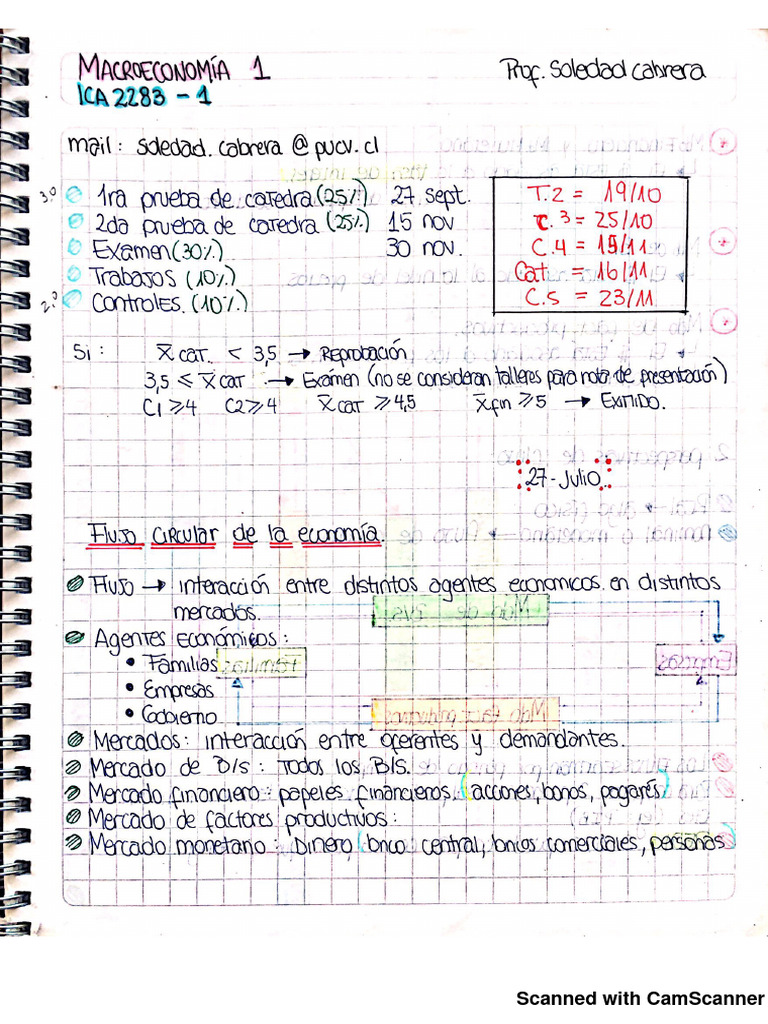 MACROECONOMÍA 1
Prof. Soledad Cabrera
ICA 2283 - 1
mail: soledad.cabrera@pucv.cl
3.º 1ra prueba de catedra (25%) 27 sept.
2da prueba de catedra (25%) 15 nov
Examen (30%) 30 nov.
Trabajos (10%)
2.º Controles. (10%)
T.2 = 19/10
C.3 = 25/10
C.4 = 15/11
Cat = 16/11
C.5 = 23/11
Si: x̄ cat. < 3,5 → Reprobación
3,5 ≤ x̄ cat → Exámen (no se consideran talleres para nota de presentación)
C1 ≥ 4 C2 ≥ 4 x̄ cat ≥ 4,5 x̄ fin ≥ 5 → EXITIDO.
27-Julio.
Flujo circular de la economía.
Flujo → interacción entre distintos agentes economicos en distintos
mercados.
Agentes Económicos:
• Familias
• Empresas
• Gobierno
Mercados: interacción entre oferentes y demandantes.
Mercado de B/s: Todos los B/S.
Mercado financiero: papeles financieros (acciones, bonos, pagarés)
Mercado de factores productivos:
Mercado monetario: Dinero (bnco central, bncos comerciales, personas)
Scanned with CamScanner